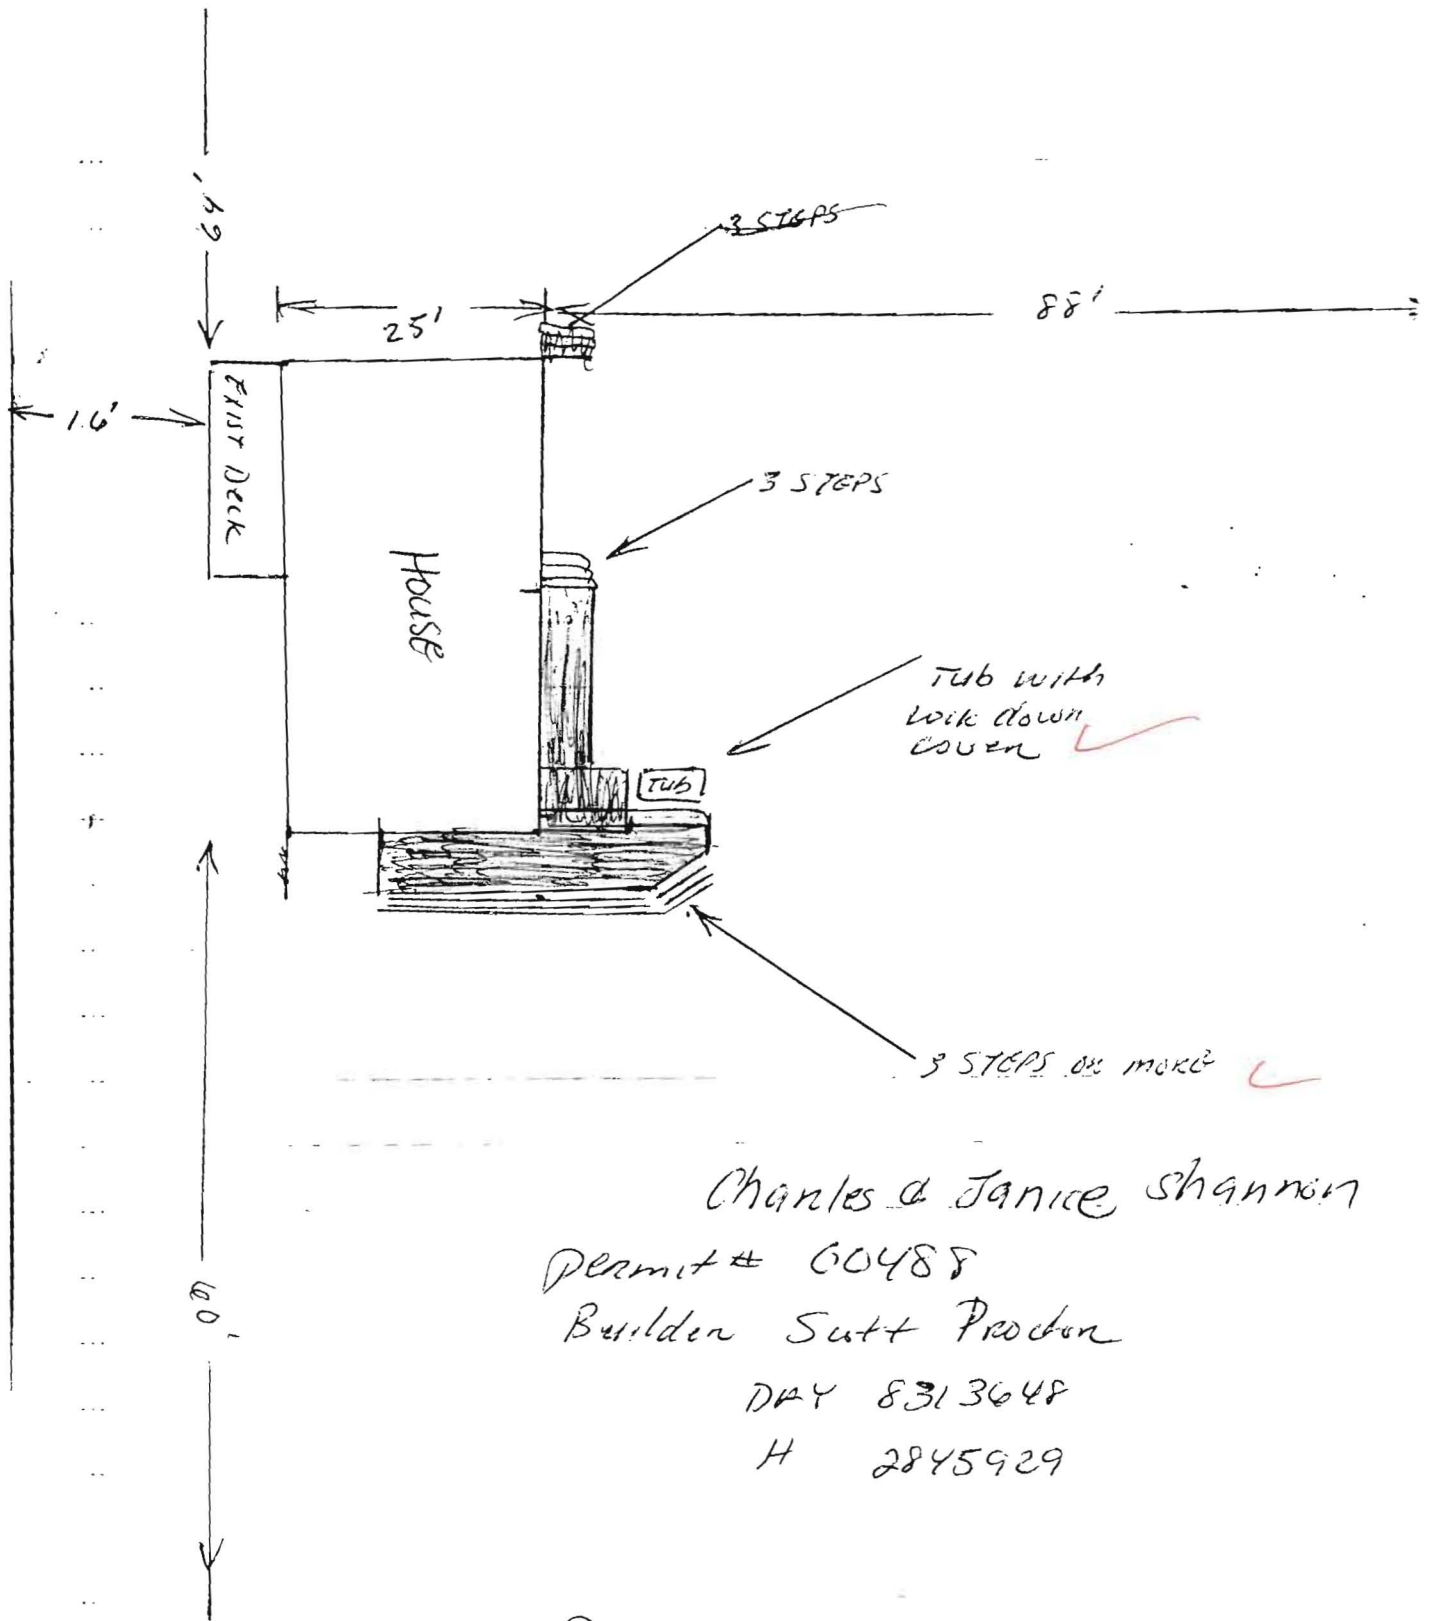 64'
3 STEPS
25'
88'
16'
EXIST DECK
3 STEPS
HOUSE
Tub with
lock down
cover
Tub
3 STEPS OR MORE
60'
Charles & Janice Shannon
Permit # 60488
Builder Scott Proctor
DAY 8313648
H 2845929